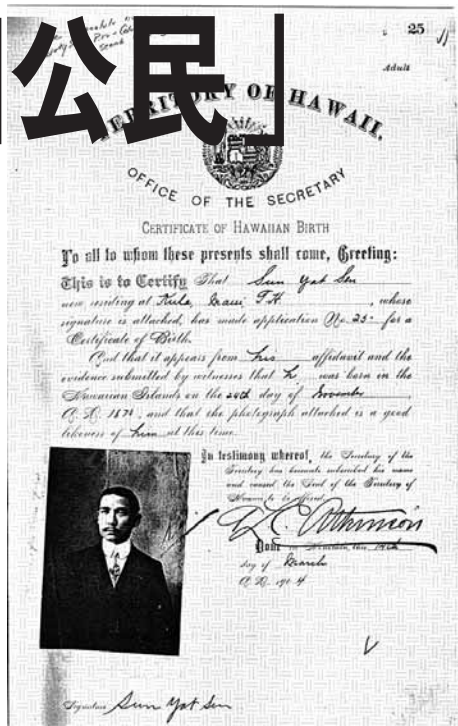 公民」
25
Adult
TERRITORY OF HAWAII.
OFFICE OF THE SECRETARY
CERTIFICATE OF HAWAIIAN BIRTH
To all to whom these presents shall come, Greeting:
This is to Certify That Sun Yat Sen
now residing at Kula, Maui T.H. , whose
signature is attached, has made application No. 25 for a
Certificate of Birth.
And that it appears from his affidavit and the
evidence submitted by witnesses that he was born in the
Hawaiian Islands on the 24th day of November
A.D. 1870, and that the photograph attached is a good
likeness of him at this time.
In testimony whereof, the Secretary of the
Territory has hereunto subscribed his name
and caused the Seal of the Secretary of
Hawaii to be affixed.
A L C Atkinson
Done in Honolulu, this 14th
day of March
A.D. 1904
Signature Sun Yat Sen